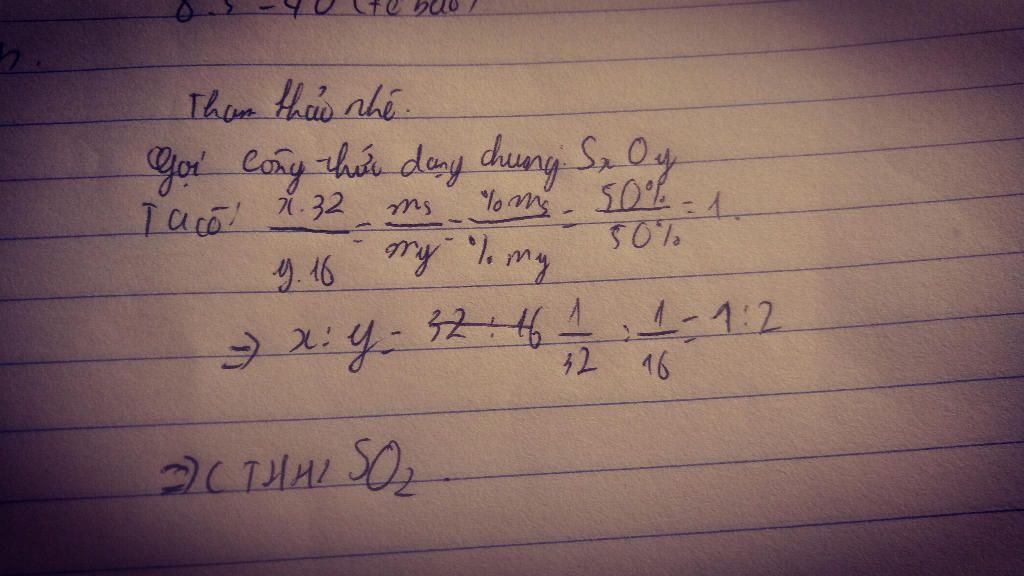 8.5 = 40 (tế bào)
Tham thảo nhé.
Gọi công thức dạng chung: SxOy
Ta có: x.32 / y.16 = ms / my = % ms / % my = 50% / 50% = 1.
=> x : y = 32 : 16 1/32 : 1/16 = 1:2
=> CTHH: SO2.